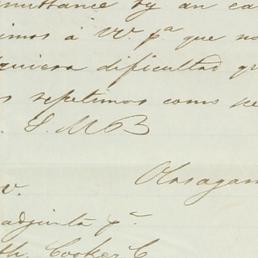 mittance by an ca
imos á VV pª que no
quiera dificultad q
s repetimos como se
S. M. B
Olasagar
v.
adjunta pª
th. Cooker C